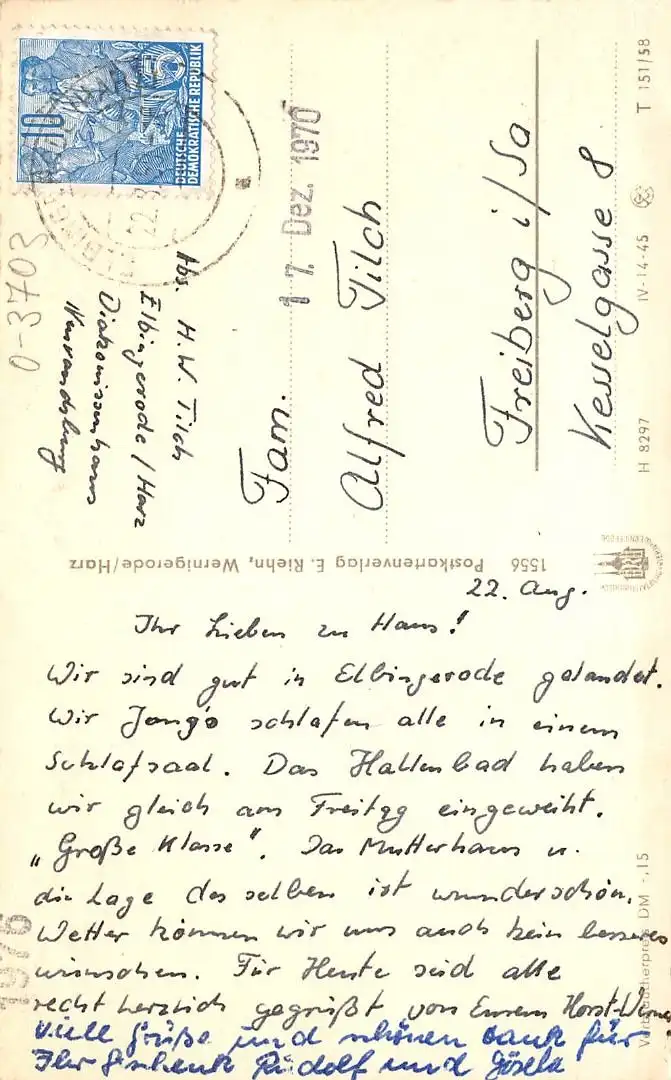 10
5
DEUTSCHE
DEMOKRATISCHE REPUBLIK
22.8.
17. Dez. 1976
0-3703
Abs. H. W. Tilch
Elbingerode / Harz
Diakonissenhaus
Fam.
Alfred Tilch
Freiberg i/Sa
Kesselgasse 8
T 151/58
IV-14-45
H 8297
1556 Postkartenverlag E. Riehn, Wernigerode/Harz
22. Aug.
Ihr Lieben zu Haus!
Wir sind gut in Elbingerode gelandet.
Wir Jong's schlafen alle in einem
Schlafsaal. Das Hallenbad haben
wir gleich am Freitag eingeweiht.
„Große Klasse“. Das Mutterhaus u.
die Lage desselben ist wunderschön.
Wetter können wir uns auch kein besseres
wünschen. Für Heute seid alle
recht herzlich gegrüßt von Eurem Horst-Werner
Viele Grüße und schönen dank für
Ihr Geschenk Rudolf und Gisela
Verbraucherpreis DM -,15
1976